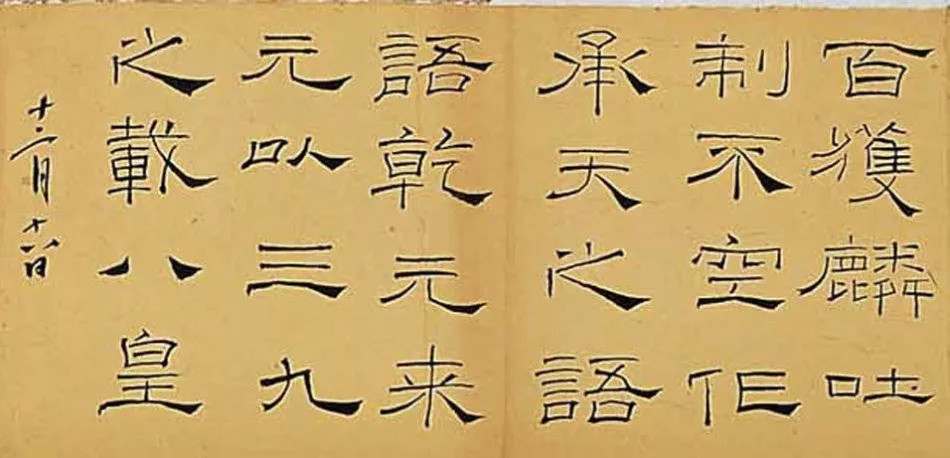 百獲麟吐
制不空作
承天之語
語乾元来
元以三九
之載八皇
十二月十八日